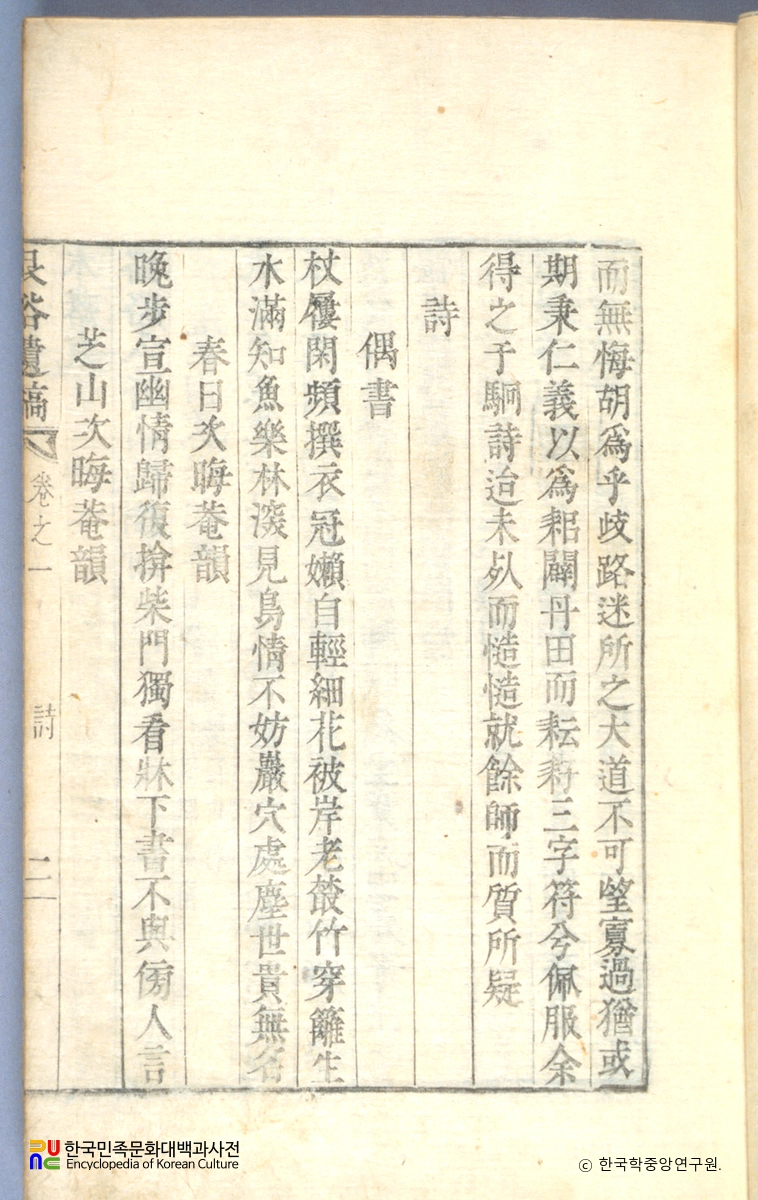 而無悔胡爲乎歧路迷所之大道不可望寡過猶或
期秉仁義以爲耜闢丹田而耘耔三字符兮佩服余
得之于駉詩迨未㕥而慥慥就餘師而質所疑
詩
偶書
杖屨閑頻撰衣冠嬾自輕細花被岸老叢竹穿籬生
水滿知魚樂林深見鳥情不妨巖穴處塵世貴無名
春日次晦菴韻
晩步宣幽情歸復揜柴門獨看牀下書不與傍人言
芝山次晦菴韻
艮谷遺稿 卷之一 詩 二
한국민족문화대백과사전
Encyclopedia of Korean Culture
ⓒ 한국학중앙연구원.